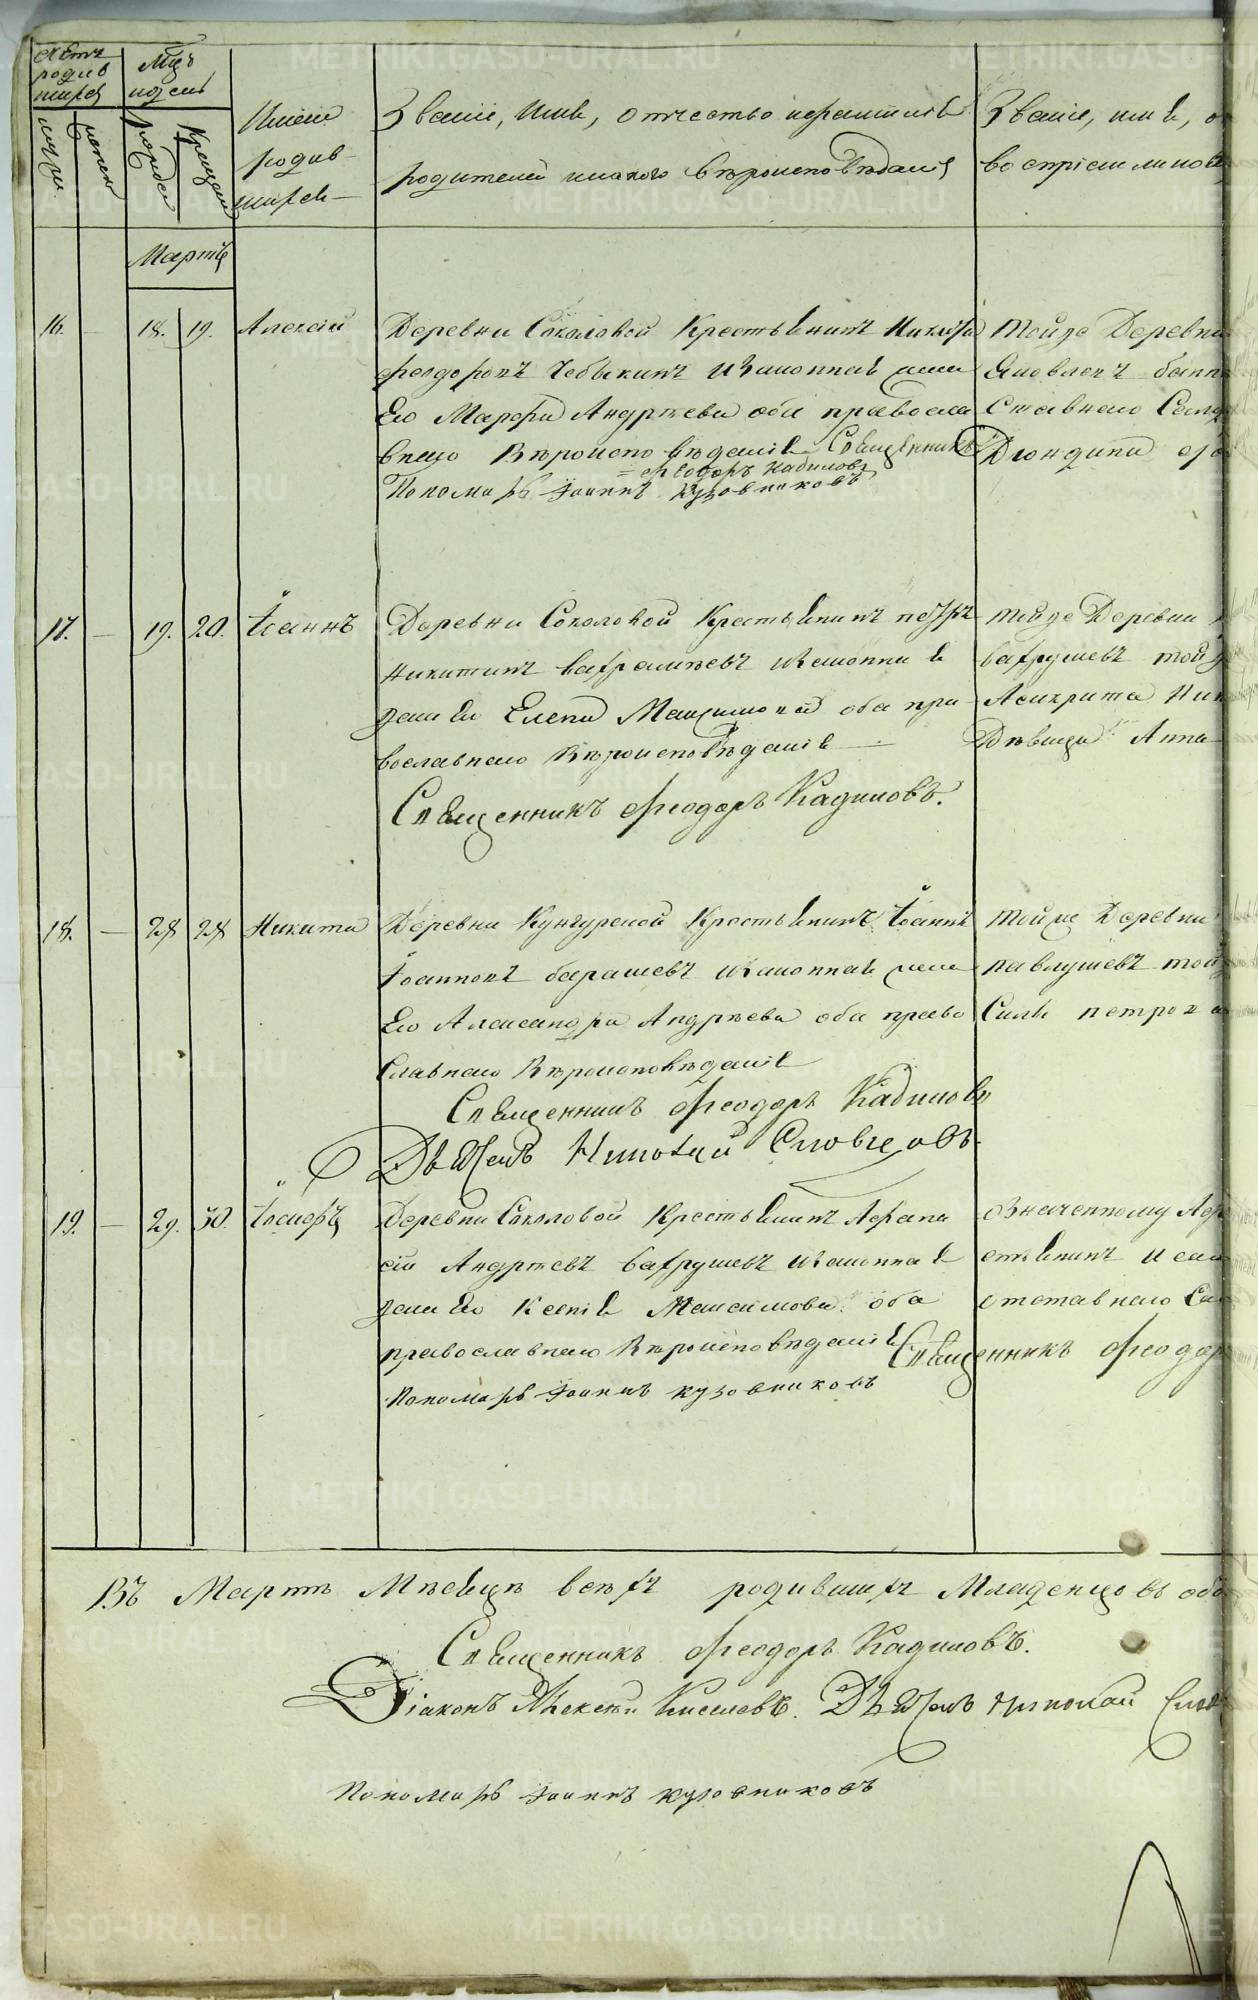 Счетъ родив шихся
Мцъ и день
муж.
женск
Рожден
Крещен
Имена родив шихся
Званіе, имя, отчество и фамилія
родителей и какого вѣроисповѣданія
Званіе, имя, о
воспріемников
Мартъ
16. — 18. 19. Алексій
Деревни Соколовой Крестьянинъ
Феодоровъ Чебыкинъ и законная жена
Его Марфа Андрѣева оба правосла
внаго Вѣроисповѣданія Священникъ
Феодоръ Кадиловъ
Пономарь Іоаннъ Кузовниковъ
Тойже Деревни
Яковлевъ
ставнаго Солд
17. — 19. 20. Іоаннъ
Деревни Соколовой Крестьянинъ Петръ
Никитинъ Вахрамѣевъ и законная
жена Ея Елена Максимова оба пра
вославнаго Вѣроисповѣданія —
Священникъ Феодоръ Кадиловъ.
Тойже Деревни
Вахрушевъ той
Асикрита Ник
Дѣвица Анна
18. — 28 28 Никита
Деревни Кунгурской Крестьянинъ Іоаннъ
Іоанновъ Барашевъ и законная жена
Его Александра Андрѣева оба право
славнаго Вѣроисповѣданія
Священникъ Феодоръ Кадиловъ
Дьячекъ Николай Словцовъ.
Тойже Деревни
Павлушевъ той
Силы Петрова
19. — 29. 30. Іосифъ
Деревни Соколовой Крестьянинъ Афана
сій Андрѣевъ Вахрушевъ и законная
жена Его Ксенія Максимова оба
православнаго Вѣроисповѣданія
Пономарь Іоаннъ Кузовниковъ
Означенному Аф
отставнаго Сол
Священникъ Феодор
Въ Мартѣ Мѣсяцѣ всѣхъ родившихъ Младенцовъ об
Священникъ Феодоръ Кадиловъ.
Діаконъ Алексѣй Киселевъ. Дьячекъ Николай Слов
Пономарь Іоаннъ Кузовниковъ
METRIKI.GASO-URAL.RU